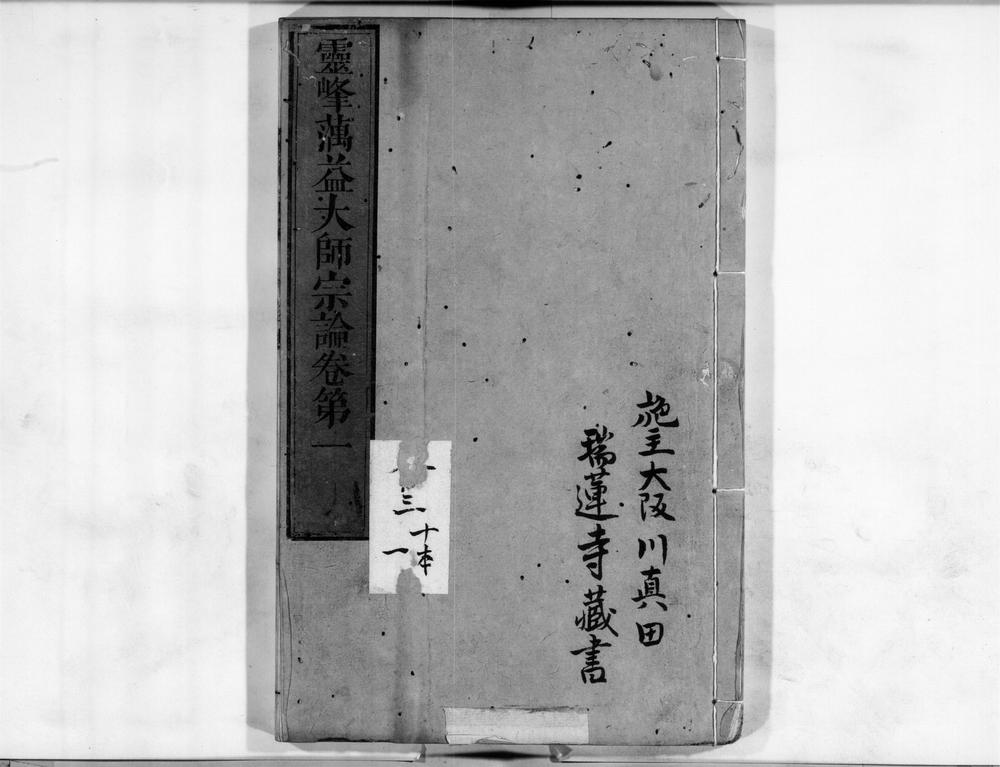 施主大阪川真田
瑞蓮寺藏書
靈峰蕅益大師宗論卷第一
三
十本
一